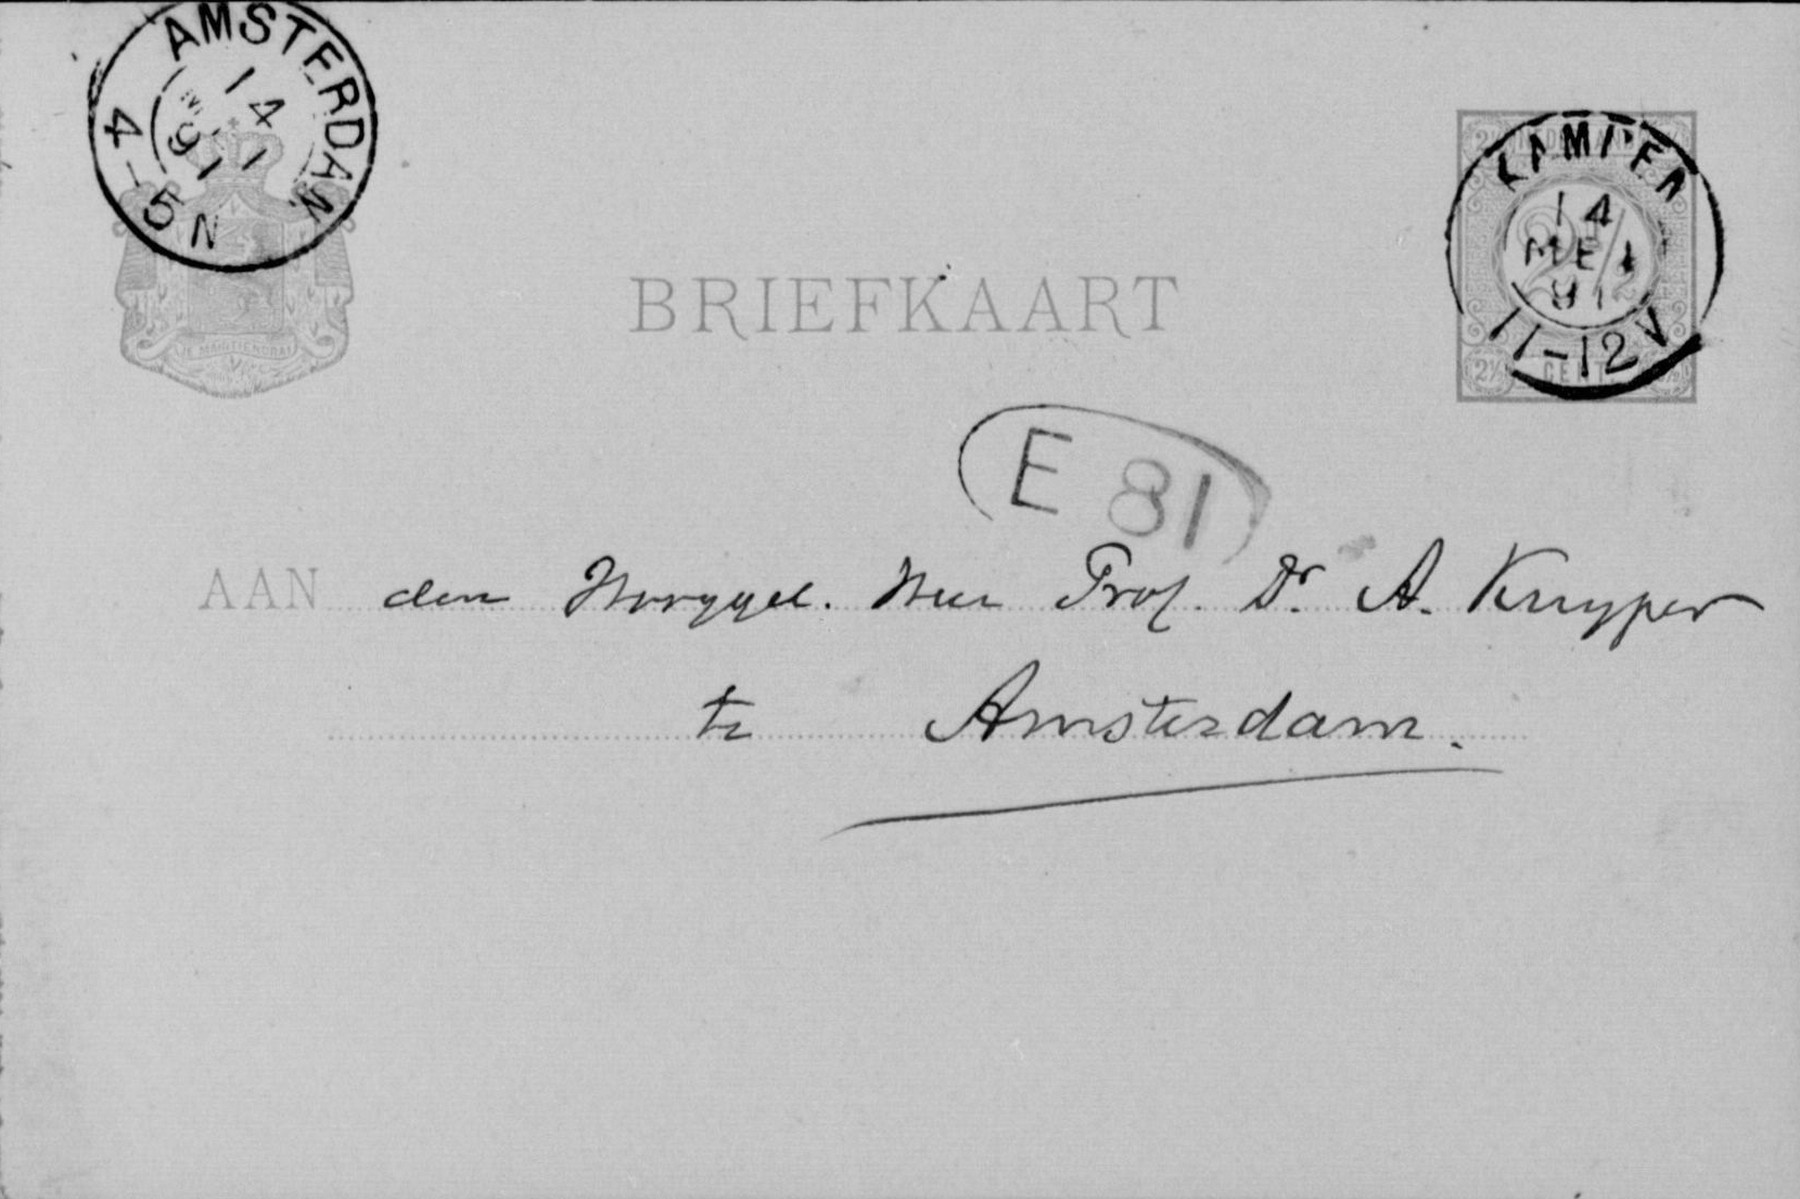 AMSTERDAM
14
91
4-5N
JE MAINTIENDRAI
BRIEFKAART
KAMPEN
14
MEI
91
11-12V
2½
CENT
E 81
AAN den Hooggel. Heer Prof. Dr. A. Kuyper
te Amsterdam.